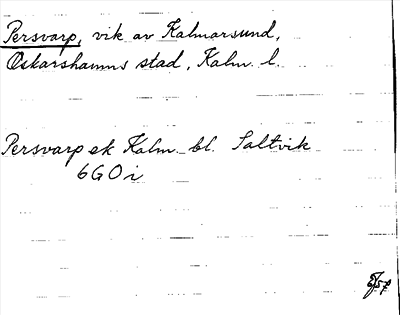 Persvarp, vik av Kalmarsund,
Oskarshamns stad, Kalm. l.
Persvarp ek Kalm. bl. Saltvik
6G0i